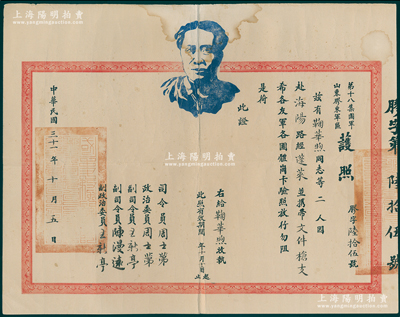 上海陽明拍賣
www.yangmingauction.com
膠字第陸拾伍號
第十八集團軍
山東膠東軍區
護照
膠字陸拾伍號
茲有鞠華煦同志等二人因
赴海陽路經蓬萊並攜帶文件槍支
希各友軍各團體崗卡驗照放行勿阻
是荷
此證
右給鞠華煦收執
此照有效期間
年十月
司令員周士第
政治委員周士第
副司令員王新亭
副司令員陳漫遠
副政治委員王新亭
中華民國三十一年十月五日
上海陽明拍賣
www.yangmingauction.com